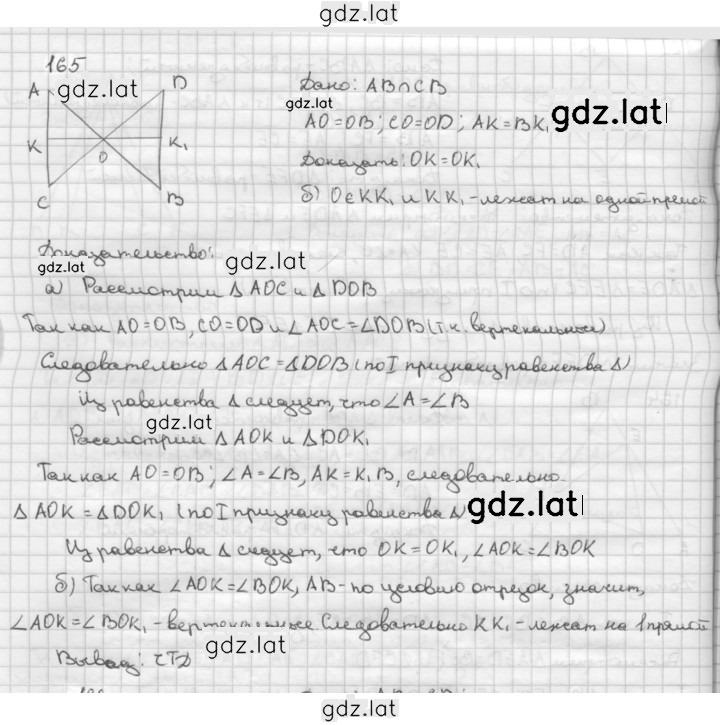 gdz.lat
165
gdz.lat
A D
K K₁
O
C B
Дано: AB∩CB
gdz.lat
AO=OB; CO=OD; AK=BK₁
gdz.lat
Доказать: OK=OK₁
б) O∈KK₁ и KK₁ - лежат на одной прямой
Доказательство:
gdz.lat
gdz.lat
а) Рассмотрим ΔAOC и ΔDOB
Так как AO=OB, CO=OD и ∠AOC=∠DOB (т.к. вертекальные)
Следовательно ΔAOC=ΔDOB (по I признаку равенства Δ)
Из равенства Δ следует, что ∠A=∠B
gdz.lat
Рассмотрим ΔAOK и ΔDOK₁
Так как AO=OB; ∠A=∠B, AK=K₁B, следовательно
ΔAOK=ΔDOK₁ (по I признаку равенства Δ)
gdz.lat
Из равенства Δ следует, что OK=OK₁, ∠AOK=∠BOK
б) Так как ∠AOK=∠BOK, AB-по условию отрезок, значит,
∠AOK=∠BOK₁ - вертекальные Следовательно KK₁ - лежат на 1 прямой
gdz.lat
Вывод: ЧТД
gdz.lat